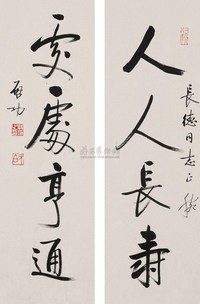 人人長壽
長德同志正
處處亨通
啟功